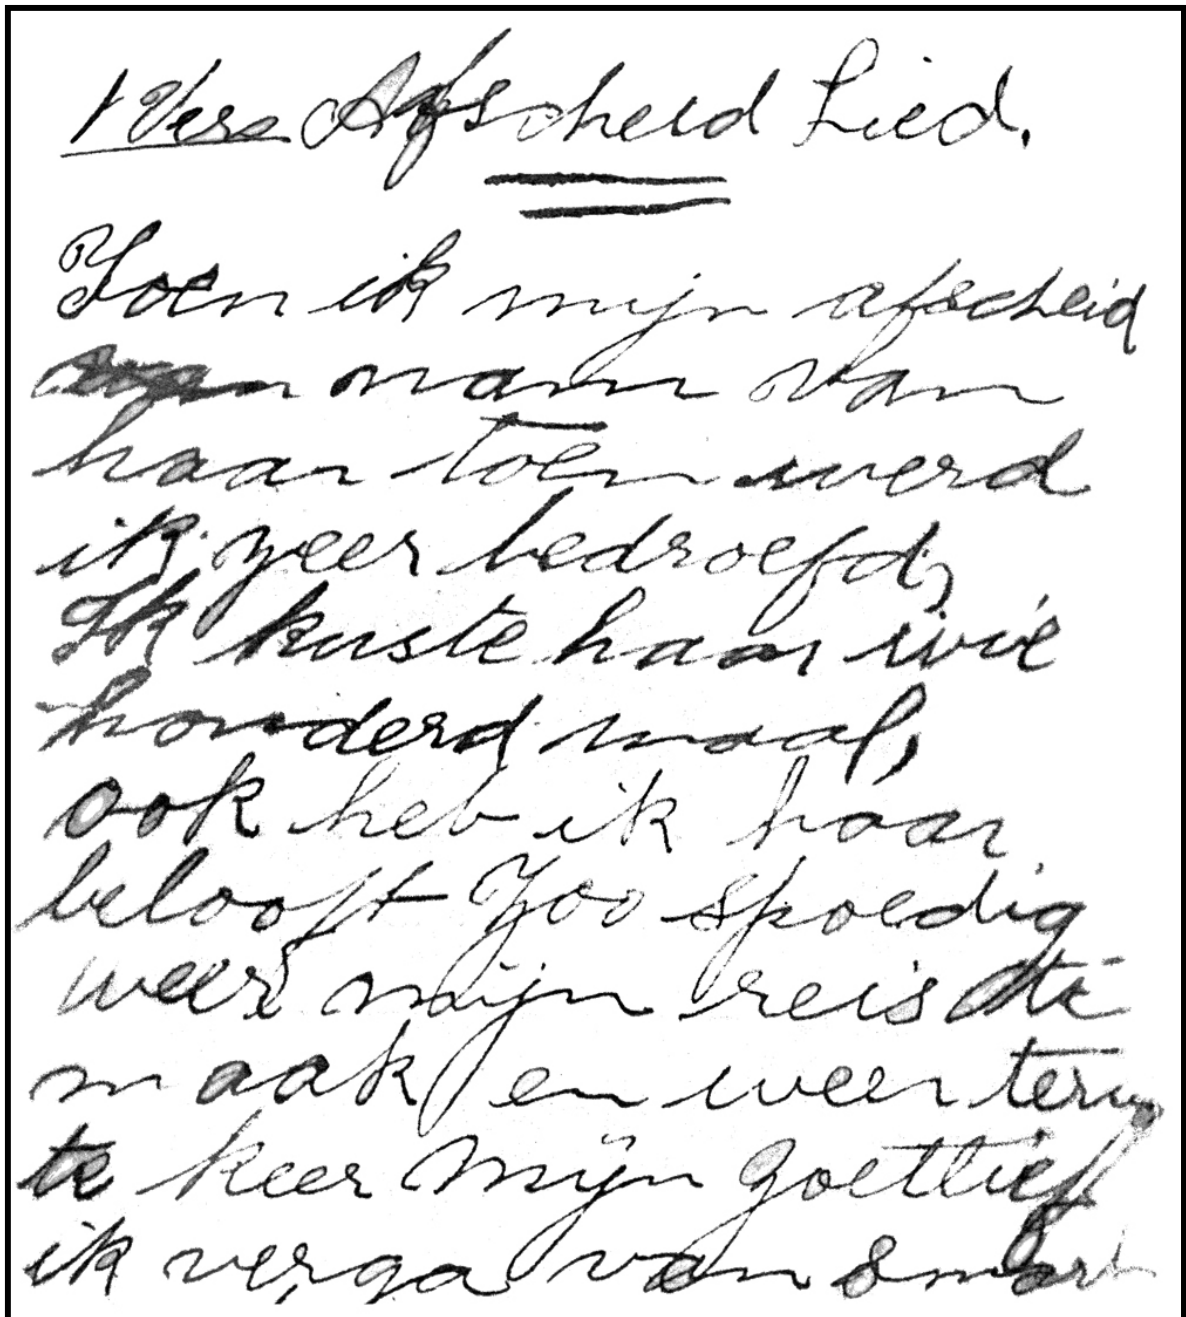 1 Vers Afscheid Lied.
Toen ik mijn afscheid
nam van
haar toen werd
ik zeer bedroefd,
Ik kuste haar wie
honderd maal,
ook heb ik haar
belooft Zoo spoedig
weer mijn reis te
maak en weer teru
te keer mijn Goetlief
ik verga van smart